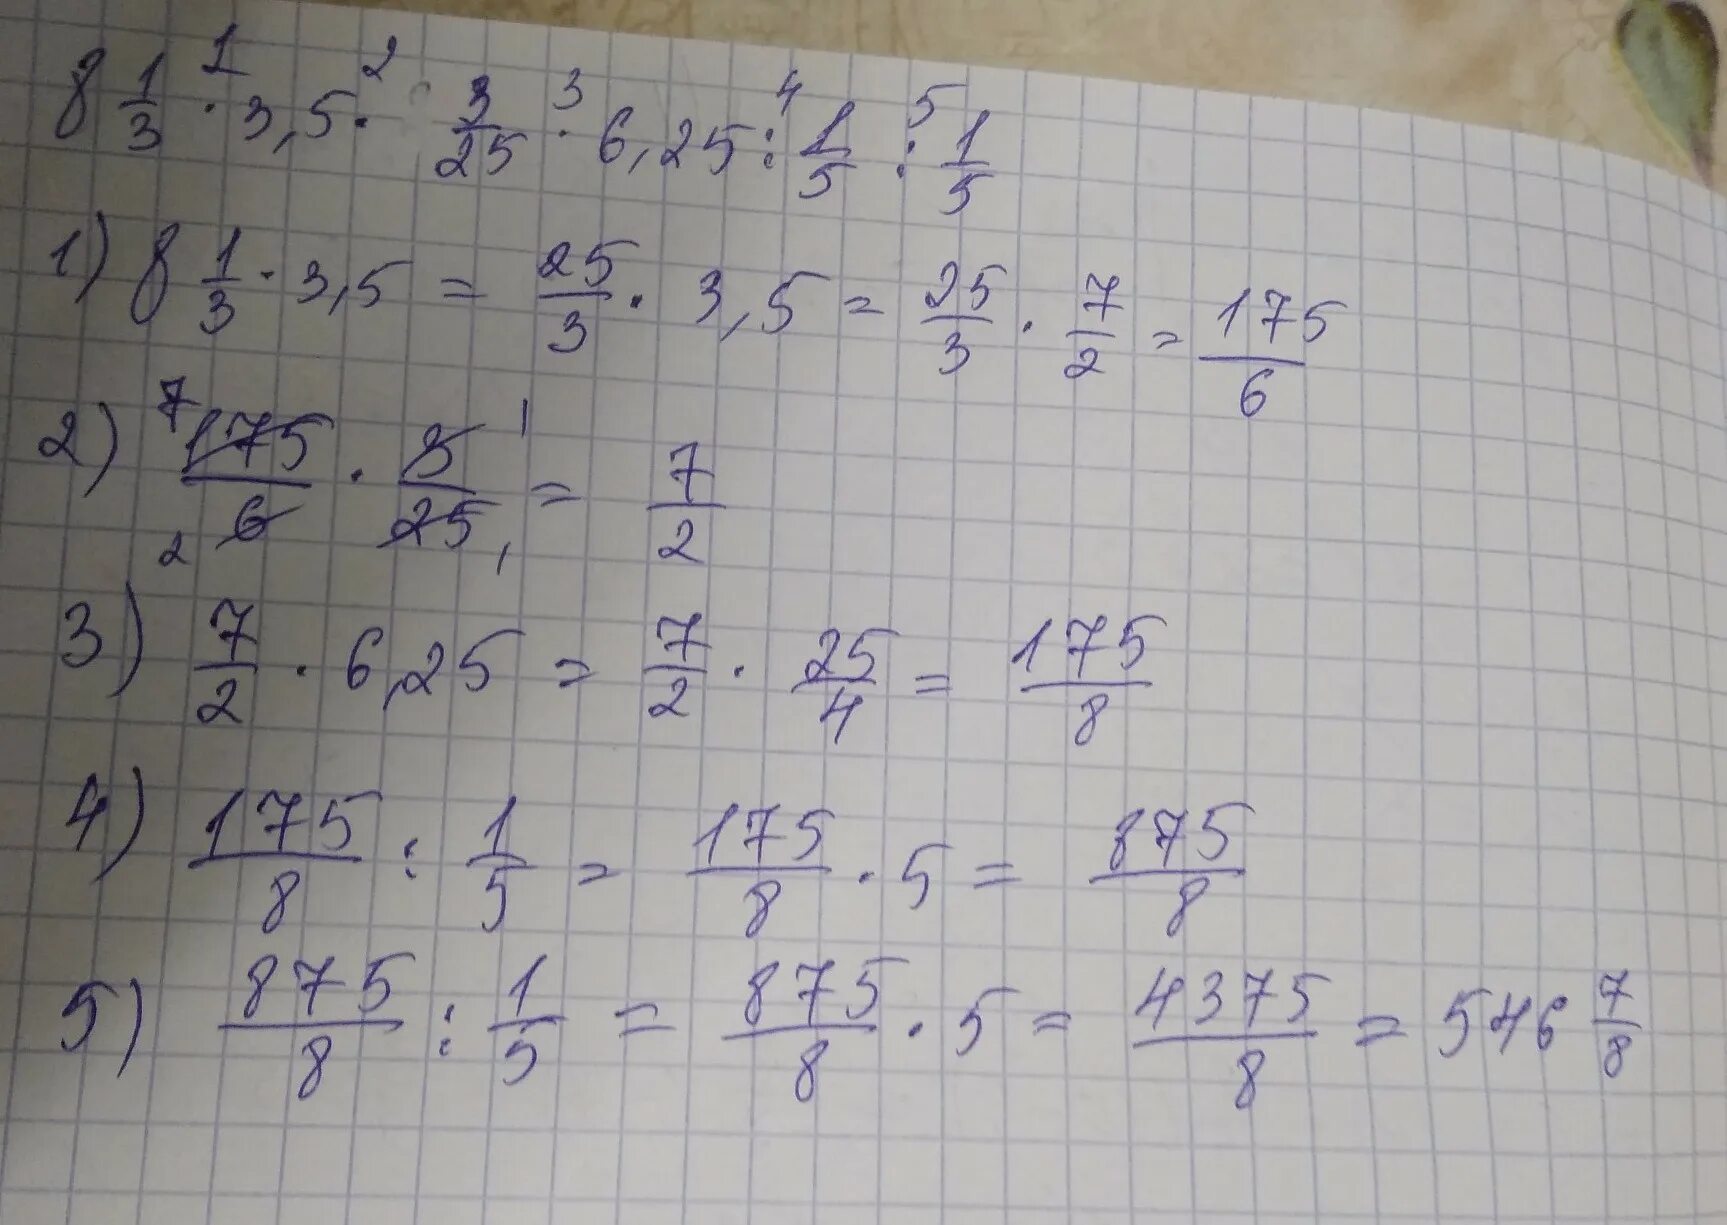 8 1/3 ·¹ 3,5 ·² 3/25 ·³ 6,25 :⁴ 1/5 :⁵ 1/5
1) 8 1/3 · 3,5 = 25/3 · 3,5 = 25/3 · 7/2 = 175/6
2) ⁷175/₂6 · 3¹/25₁ = 7/2
3) 7/2 · 6,25 = 7/2 · 25/4 = 175/8
4) 175/8 : 1/5 = 175/8 · 5 = 875/8
5) 875/8 : 1/5 = 875/8 · 5 = 4375/8 = 546 7/8